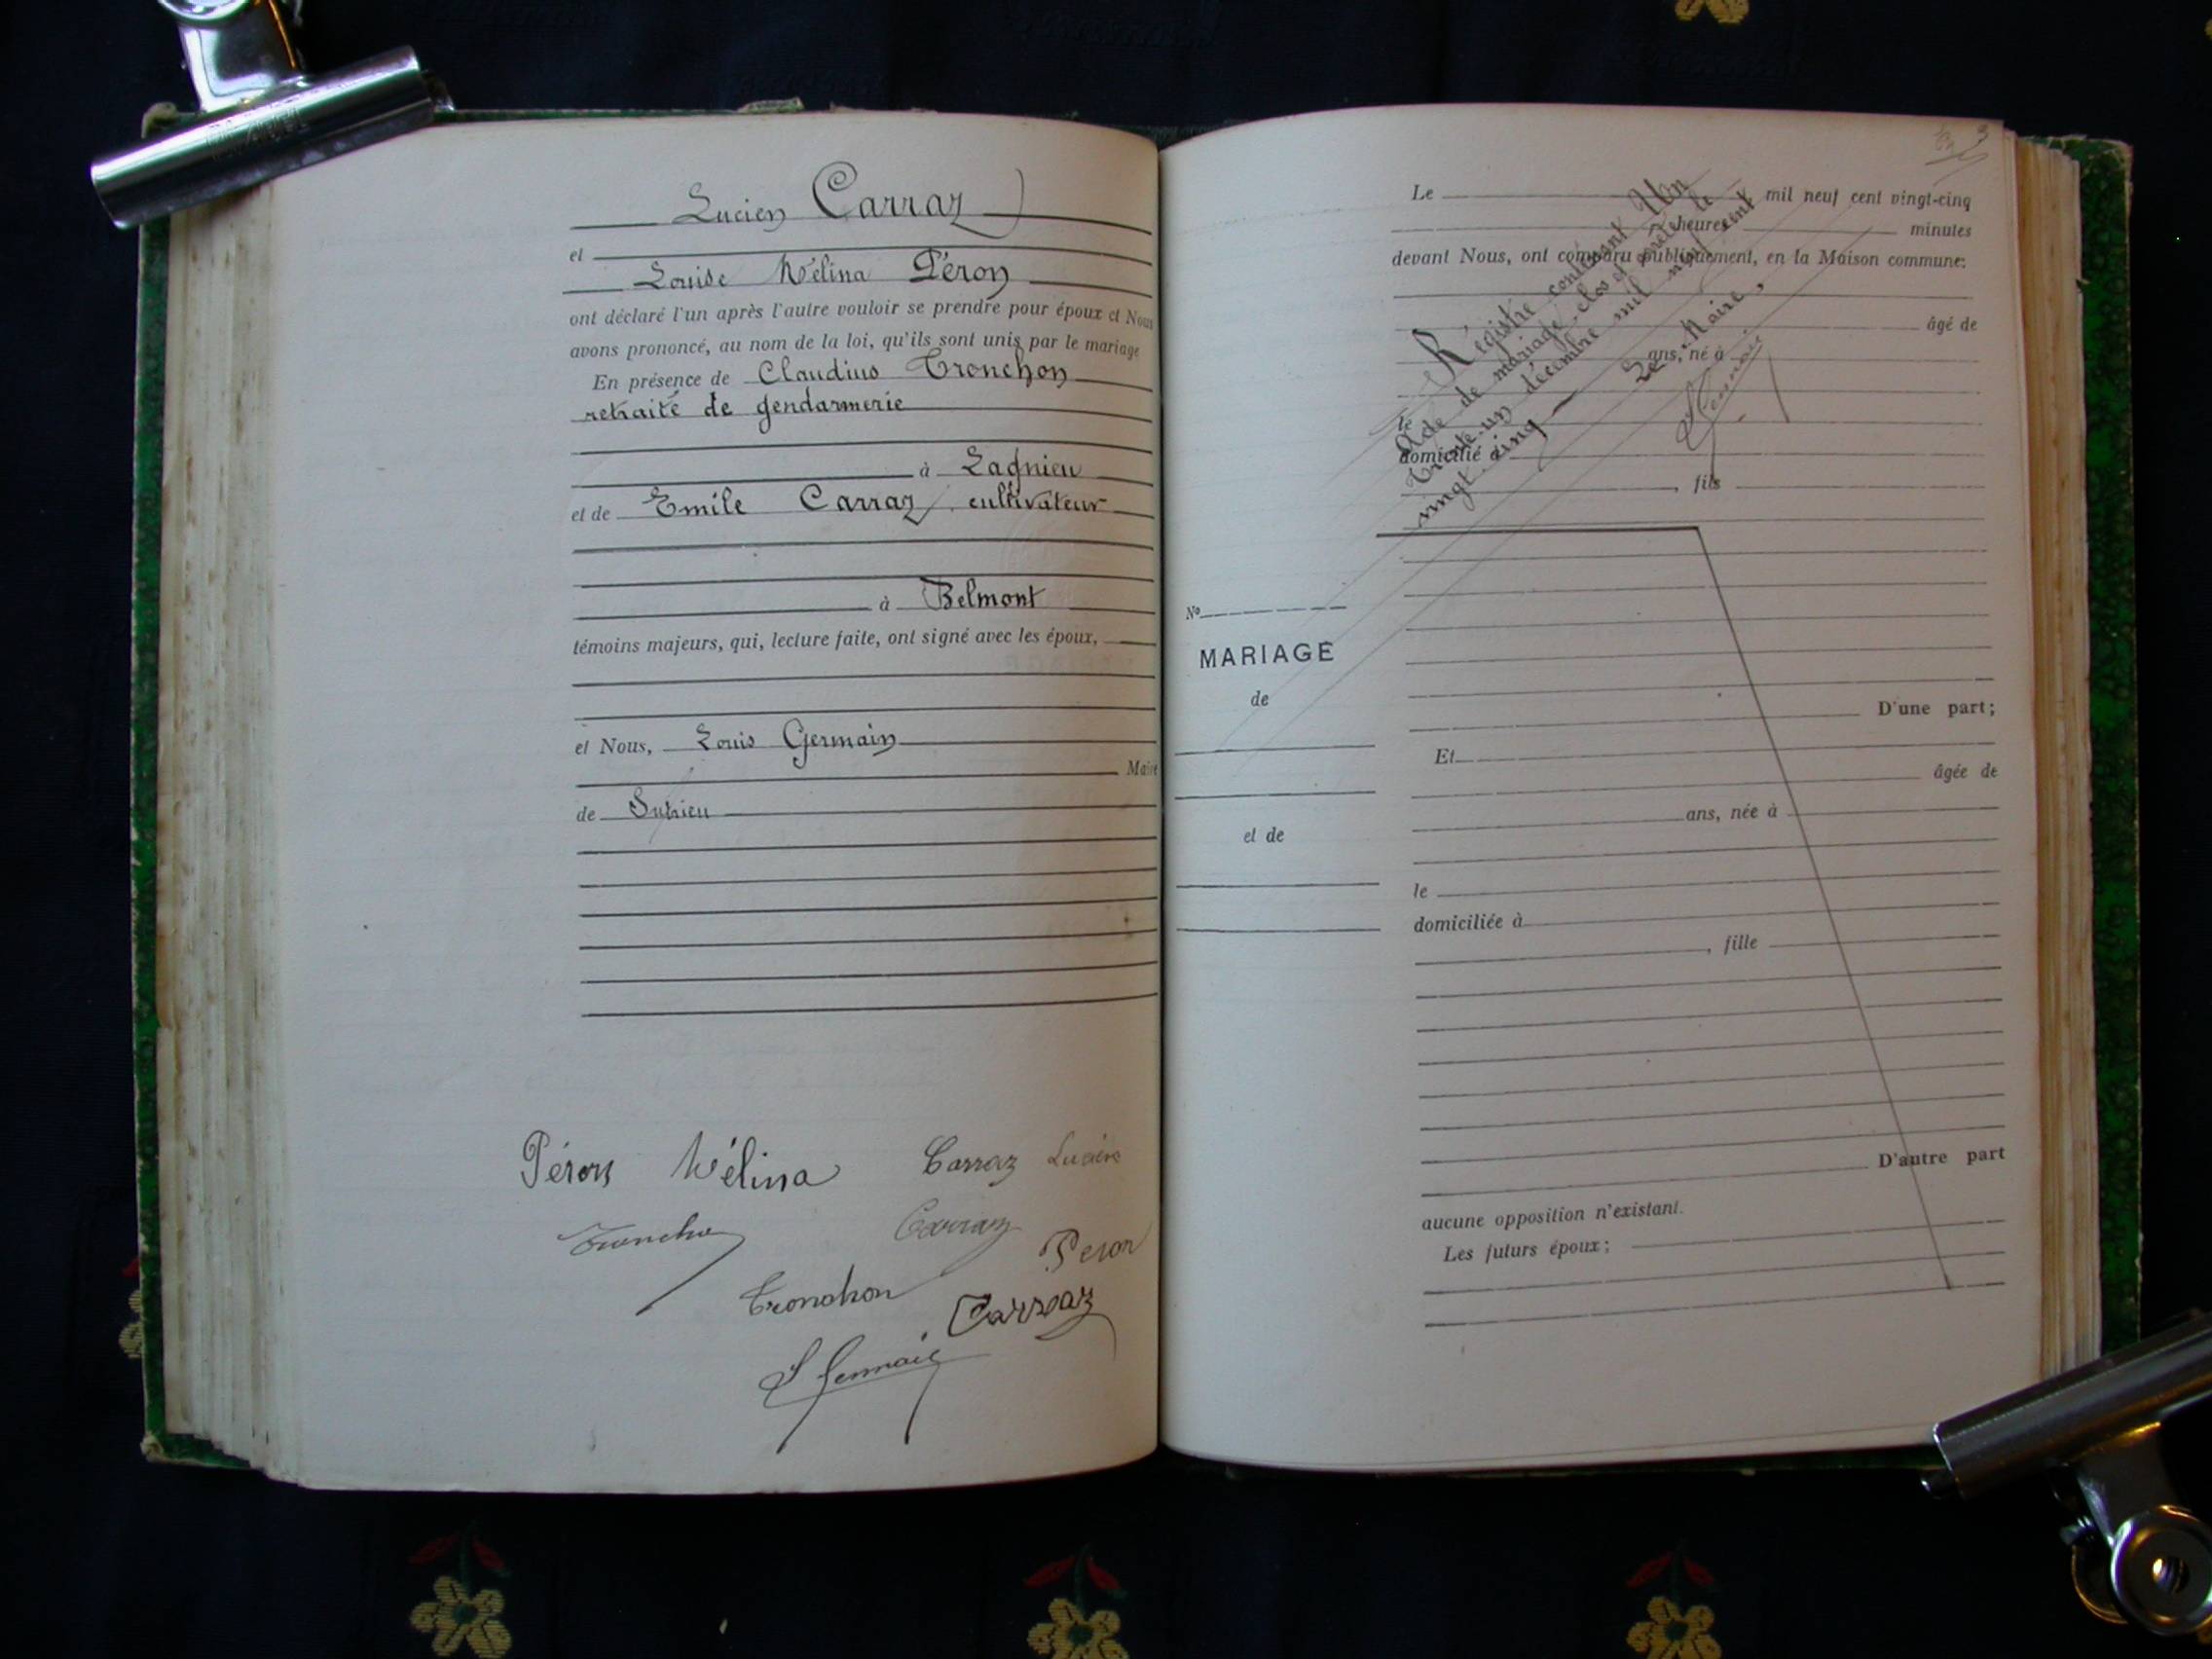 Lucien Carraz
et
Louise Mélina Péron
ont déclaré l'un après l'autre vouloir se prendre pour époux et Nous
avons prononcé, au nom de la loi, qu'ils sont unis par le mariage
En présence de Claudius Tronchon
retraité de gendarmerie
à Lagnieu
et de Emile Carraz, cultivateur
à Belmont
témoins majeurs, qui, lecture faite, ont signé avec les époux,
et Nous, Louis Germain
Maire
de Sutrieu
Péron Mélina Carraz Lucien
Tronchon Carraz
Peron
Tronchon Carraz
L Germain
Le mil neuf cent vingt-cinq
heures minutes
devant Nous, ont comparu publiquement, en la Maison commune:
âgé de
ans, né à
le
domicilié à
, fils
Registre contenant Un
Acte de mariage clos et arrêté le
Trente-un décembre mil neuf cent
vingt-cinq
Le Maire,
L Germain
No
MARIAGE
de
et de
D'une part;
Et
âgée de
ans, née à
le
domiciliée à
, fille
D'autre part
aucune opposition n'existant.
Les futurs époux;